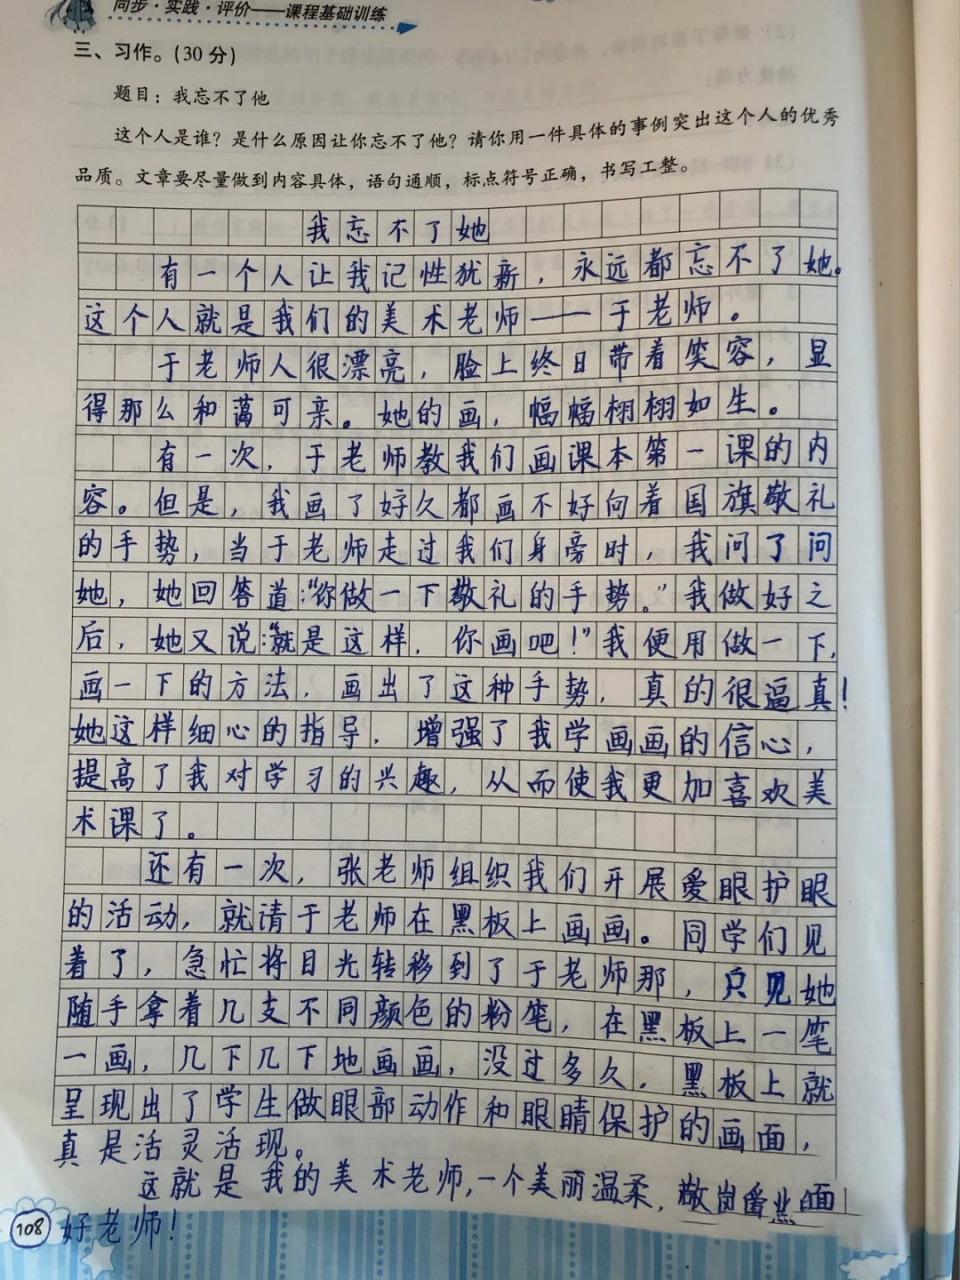 同步·实践·评价——课程基础训练
三、习作。(30分)
题目：我忘不了他
这个人是谁？是什么原因让你忘不了他？请你用一件具体的事例突出这个人的优秀
品质。文章要尽量做到内容具体，语句通顺，标点符号正确，书写工整。
我忘不了她
有一个人让我记性犹新，永远都忘不了她。
这个人就是我们的美术老师——于老师。
于老师人很漂亮，脸上终日带着笑容，显
得那么和蔼可亲。她的画，幅幅栩栩如生。
有一次，于老师教我们画课本第一课的内
容。但是，我画了好久都画不好向着国旗敬礼
的手势，当于老师走过我们身旁时，我问了问
她，她回答道：“你做一下敬礼的手势。”我做好之
后，她又说：“就是这样，你画吧！”我便用做一下，
画一下的方法，画出了这种手势，真的很逼真！
她这样细心的指导，增强了我学画画的信心，
提高了我对学习的兴趣，从而使我更加喜欢美
术课了。
还有一次，张老师组织我们开展爱眼护眼
的活动，就请于老师在黑板上画画。同学们见
着了，急忙将目光转移到了于老师那，只见她
随手拿着几支不同颜色的粉笔，在黑板上一笔
一画，几下几下地画画，没过多久，黑板上就
呈现出了学生做眼部动作和眼睛保护的画面，
真是活灵活现。
这就是我的美术老师，一个美丽温柔，
好老师！
108